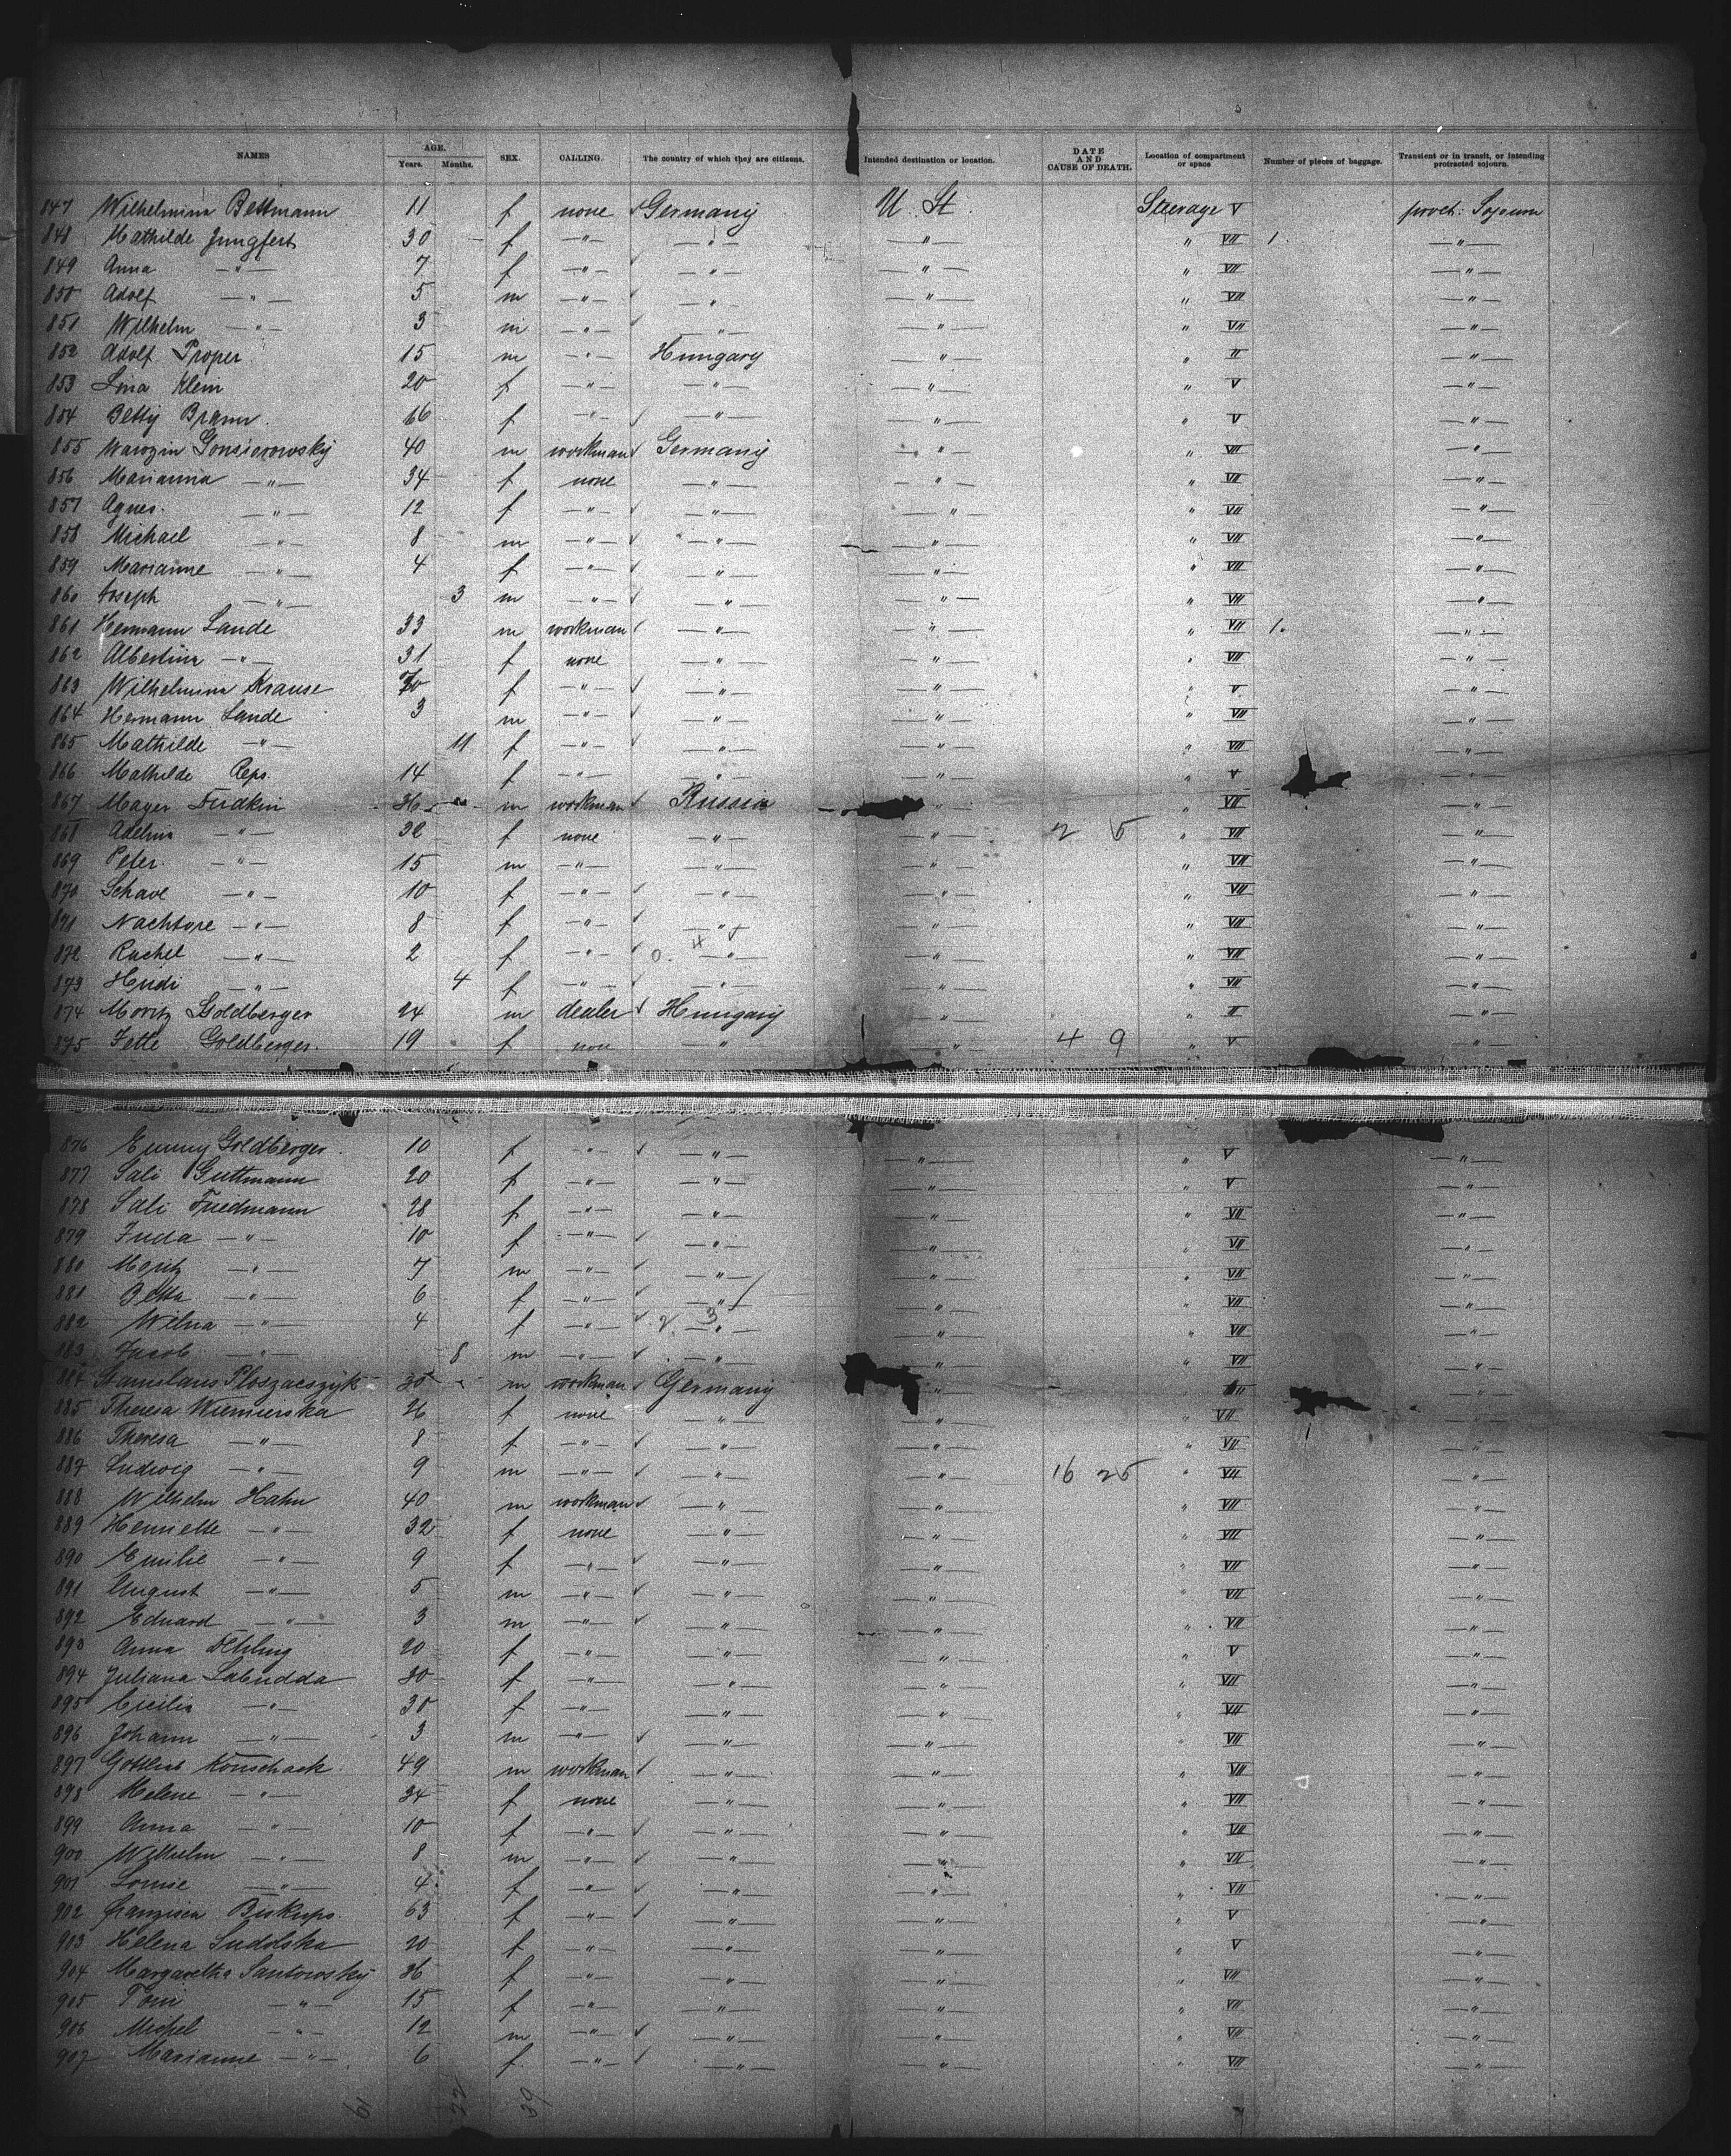 NAMES AGE. Years. Months. SEX. CALLING. The country of which they are citizens. Intended destination or location. DATE AND CAUSE OF DEATH. Location of compartment or space Number of pieces of baggage. Transient or in transit, or intending protracted sojourn.
847 Wilhelmina Bettmann 11 f none Germany U. St. Steerage V protr: Sojourn
848 Mathilde Jungfert 30 f —"— —"— —"— " VII 1. —"—
849 Anna —"— 7 f —"— —"— —"— " VII —"—
850 Adolf —"— 5 m —"— —"— —"— " VII —"—
851 Wilhelm —"— 3 m —"— —"— —"— " VII —"—
852 Adolf Proper 15 m —"— Hungary —"— " II —"—
853 Lina Klein 20 f —"— —"— —"— " V —"—
854 Betty Braun. 16 f —"— —"— —"— " V —"—
855 Wawzin Gonsierowsky 40 m workman Germany —"— " VII —"—
856 Marianna —"— 34 f none —"— —"— " VII —"—
857 Agnes. —"— 12 f —"— —"— —"— " VII —"—
858 Michael —"— 8 m —"— —"— —"— " VII —"—
859 Marianne —"— 4 f —"— —"— —"— " VII —"—
860 Joseph —"— 3 m —"— —"— —"— " VII —"—
861 Hermann Lande 33 m workman —"— —"— " VII 1. —"—
862 Albertina —"— 31 f none —"— —"— " VII —"—
863 Wilhelmina Krause f —"— —"— —"— " V —"—
864 Hermann Lande 3 m —"— —"— —"— " VII —"—
865 Mathilde —"— 11 f —"— —"— —"— " VII —"—
866 Mathilde Reps. 14 f —"— —"— —"— " V —"—
867 Mayer Dudkin 36 m workman Russia " " VII —"—
868 —"— 32 f none —"— —"— 2 5 " VII —"—
869 Peter —"— 15 m —"— —"— —"— " VII —"—
870 Schave —"— 10 f —"— —"— —"— " VII —"—
871 Nachtore —"— 8 f —"— —"— —"— " VII —"—
872 Rachel —"— 2 f —"— —"— —"— " VII —"—
873 Hudi —"— 4 f —"— —"— —"— " VII —"—
874 Moritz Goldberger 24 m dealer Hungary —"— " II —"—
875 Jette Goldberger. 19 f none —"— —"— 4 9 " V —"—
876 Emmy Goldberger. 10 f —"— —"— —"— " V —"—
877 Sali Guttmann 20 f —"— —"— —"— " V —"—
878 Sali Friedmann 28 f —"— —"— —"— " VII —"—
879 Juda —"— 10 f —"— —"— —"— " VII —"—
880 Moritz —"— 7 m —"— —"— —"— " VII —"—
881 Betta —"— 6 f —"— —"— —"— " VII —"—
882 Wilna —"— 4 f —"— 2. 3 —"— —"— " VII —"—
883 Jacob —"— 8 m —"— —"— —"— " VII —"—
884 Stanislaus Ploszaeszyk 30 m workman Germany " VII —"—
885 Theresa Wiemierska 26 f none —"— —"— " VII —"—
886 Theresa —"— 8 f —"— —"— —"— " VII —"—
887 Ludwig —"— 9 m —"— —"— —"— 16 25 " VII —"—
888 Wilhelm Hahn 40 m workman —"— —"— " VII —"—
889 Henriette —"— 32 f none —"— —"— " VII —"—
890 Emilie —"— 9 f —"— —"— —"— " VII —"—
891 August —"— 5 m —"— —"— —"— " VII —"—
892 Eduard —"— 3 m —"— —"— —"— " VII —"—
893 Anna 20 f —"— —"— —"— " V —"—
894 Juliana Labudda 30 f —"— —"— —"— " VII —"—
895 Cicilia —"— 30 f —"— —"— —"— " VII —"—
896 Johann —"— 3 m —"— —"— —"— " VII —"—
897 Gottlieb Konschack 49 m workman —"— —"— " VII —"—
898 Helene —"— 34 f none —"— —"— " VII —"—
899 Anna —"— 10 f —"— —"— —"— " VII —"—
900 Wilhelm —"— 8 m —"— —"— —"— " VII —"—
901 Louise —"— 4 f —"— —"— —"— " VII —"—
902 Franzisca Biskups. 63 f —"— —"— —"— " V —"—
903 Helena Sudolska 20 f —"— —"— —"— " V —"—
904 Margaretha Santowsky 36 f —"— —"— —"— " VII —"—
905 Toni —"— 15 f —"— —"— —"— " VII —"—
906 Michel —"— 12 m —"— —"— —"— " VII —"—
907 Marianne —"— 6 f. —"— —"— —"— " VII —"—
61 22 39